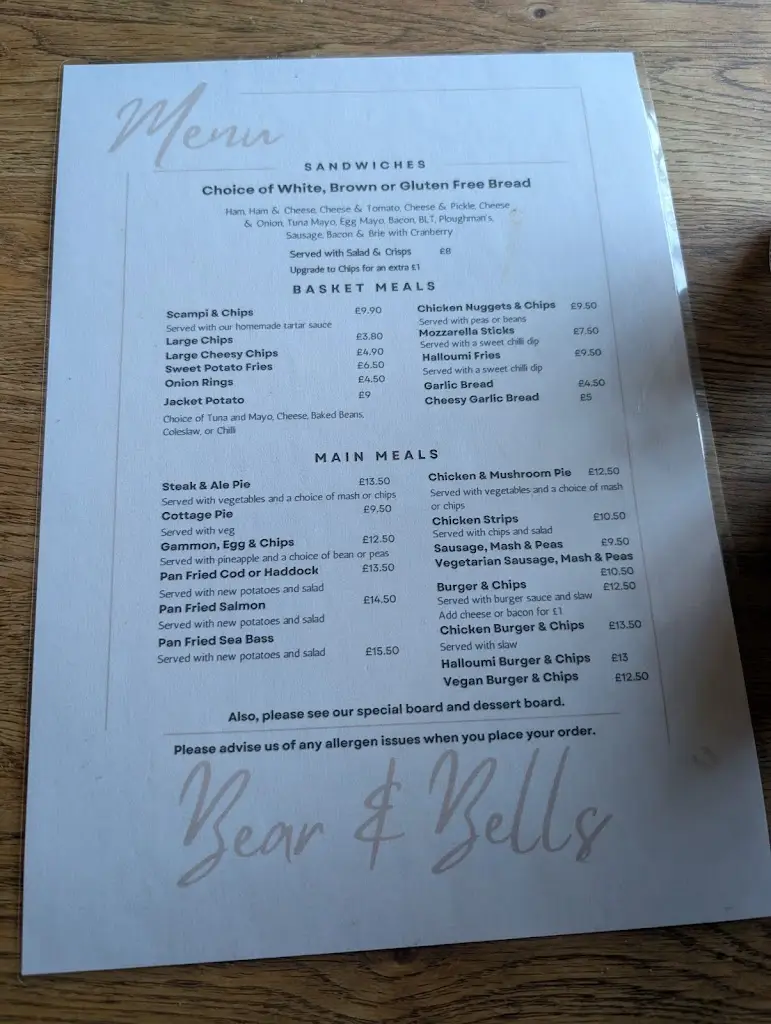 Menu
SANDWICHES
Choice of White, Brown or Gluten Free Bread
Ham, Ham & Cheese, Cheese & Tomato, Cheese & Pickle, Cheese
& Onion, Tuna Mayo, Egg Mayo, Bacon, BLT, Ploughman's,
Sausage, Bacon & Brie with Cranberry
Served with Salad & Crisps £8
Upgrade to Chips for an extra £1
BASKET MEALS
Scampi & Chips £9.90
Served with our homemade tartar sauce
Large Chips £3.80
Large Cheesy Chips £4.90
Sweet Potato Fries £6.50
Onion Rings £4.50
Jacket Potato £9
Choice of Tuna and Mayo, Cheese, Baked Beans,
Coleslaw, or Chilli
Chicken Nuggets & Chips £9.50
Served with peas or beans
Mozzarella Sticks £7.50
Served with a sweet chilli dip
Halloumi Fries £9.50
Served with a sweet chilli dip
Garlic Bread £4.50
Cheesy Garlic Bread £5
MAIN MEALS
Steak & Ale Pie £13.50
Served with vegetables and a choice of mash or chips
Cottage Pie £9.50
Served with veg
Gammon, Egg & Chips £12.50
Served with pineapple and a choice of bean or peas
Pan Fried Cod or Haddock £13.50
Served with new potatoes and salad
Pan Fried Salmon £14.50
Served with new potatoes and salad
Pan Fried Sea Bass
Served with new potatoes and salad £15.50
Chicken & Mushroom Pie £12.50
Served with vegetables and a choice of mash
or chips
Chicken Strips £10.50
Served with chips and salad
Sausage, Mash & Peas £9.50
Vegetarian Sausage, Mash & Peas
£10.50
Burger & Chips £12.50
Served with burger sauce and slaw
Add cheese or bacon for £1
Chicken Burger & Chips £13.50
Served with slaw
Halloumi Burger & Chips £13
Vegan Burger & Chips £12.50
Also, please see our special board and dessert board.
Please advise us of any allergen issues when you place your order.
Bear & Bells